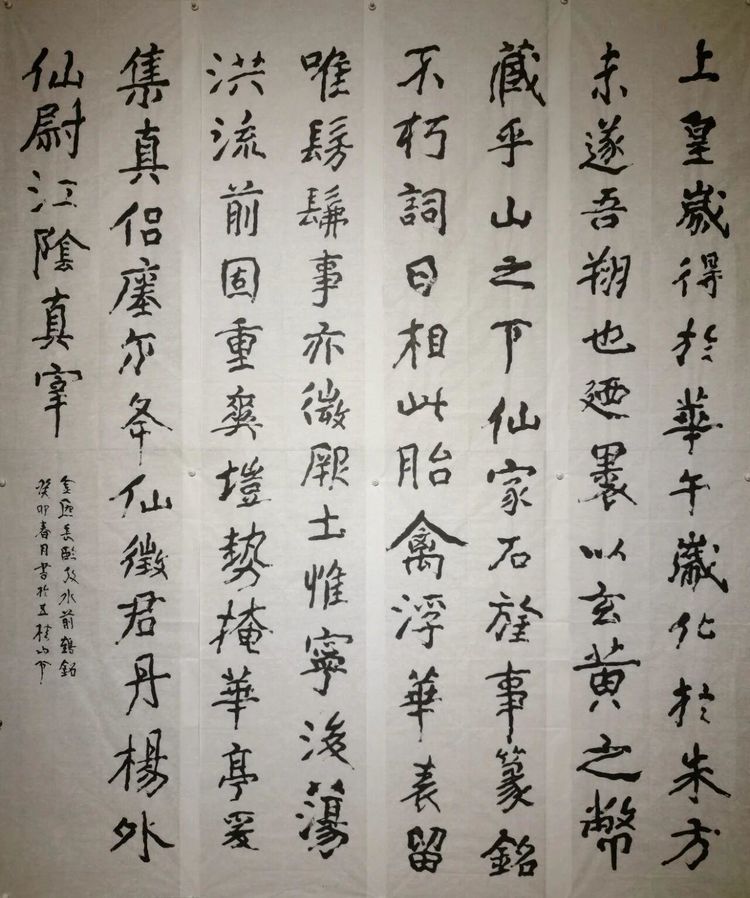 上皇歲得於華午歲化於朱方
未遂吾翔也迺裹以玄黄之幣
藏乎山之下仙家石旌事篆銘
不朽詞曰相此胎禽浮華表留
唯髣髴事亦微厥土惟寧後蕩
洪流前固重爽塏勢掩華亭爰
集真侣瘞尔夅仙徵君丹楊外
仙尉江陰真宰
水前鶴銘
癸卯春月書於五桂山下